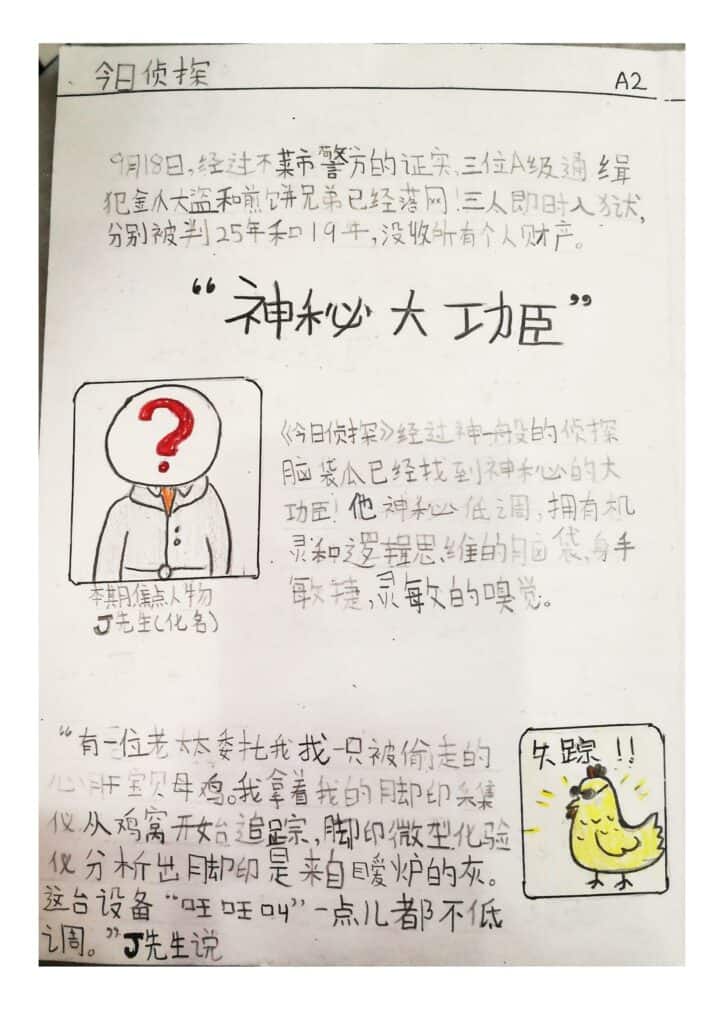 今日侦探
A2
9月18日,经过不菜市警方的证实,三位A级通缉
犯金爪大盗和煎饼兄弟已经落网!三人即时入狱,
分别被判25年和19年,没收所有个人财产。
“神秘大功臣”
?
《今日侦探》经过神一般的侦探
脑袋瓜已经找到神秘的大
功臣!他神秘低调,拥有机
灵和逻辑思维的脑袋,身手
敏捷,灵敏的嗅觉。
本期焦点人物
J先生(化名)
“有一位老太太委托我找一只被偷走的
心肝宝贝母鸡。我拿着我的脚印采集
仪从鸡窝开始追踪,脚印微型化验
仪分析出脚印是来自暖炉的灰。
这台设备“旺旺叫”一点儿都不低
调。”J先生说
失踪!!